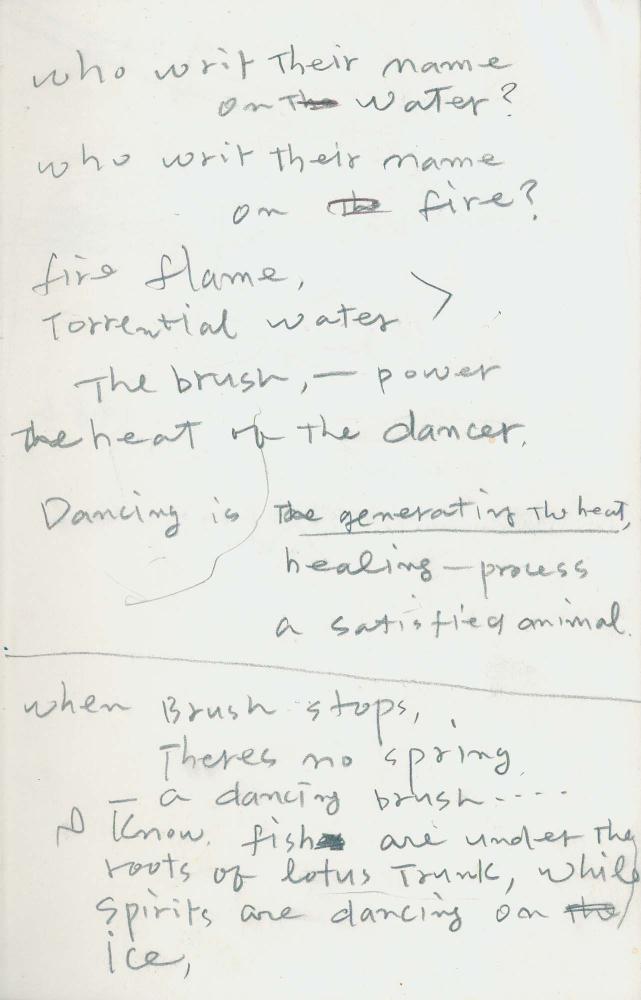 who writ their name
on the water?
who writ their name
on the fire?
fire flame,
Torrential water >
The brush, — power
the heat of the dancer.
Dancing is the generating the heat,
healing — process
a satisfied animal.
when Brush stops,
Theres no spring
— a dancing brush.....
I know. fish are under the
roots of lotus Trunk, while
spirits are dancing on the
ice,